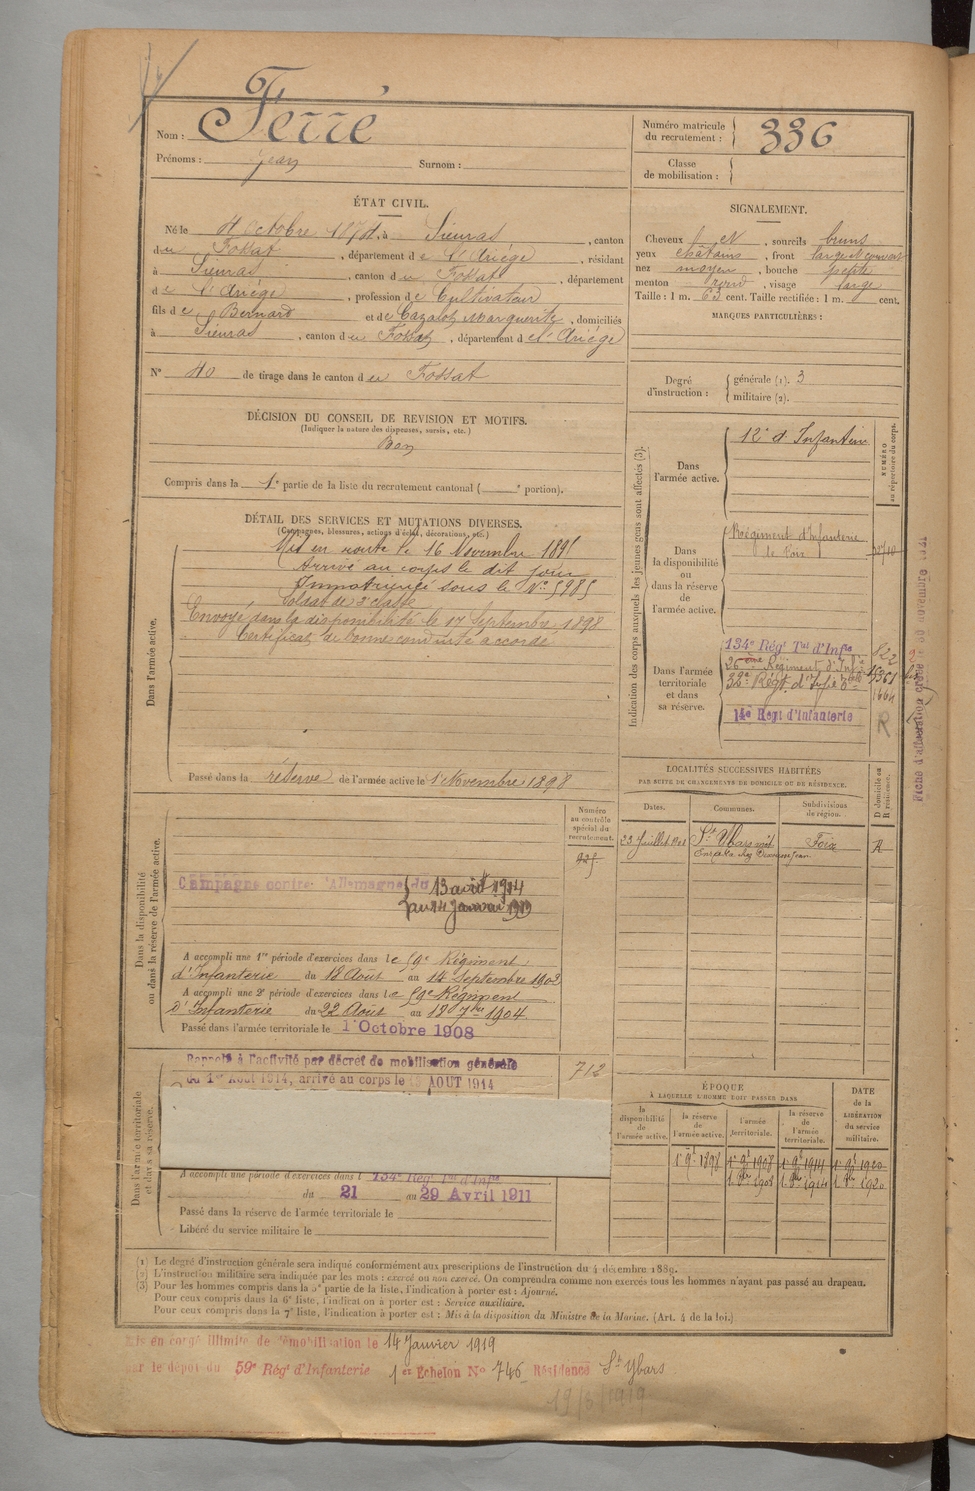 Ferré
Nom :
Prénoms : Jean Surnom :
Numéro matricule du recrutement : 336
Classe de mobilisation :
ÉTAT CIVIL.
Né le 4 Octobre 1874, à Sieuras, canton
du Fossat, département de l'Ariège, résidant
à Sieuras, canton du Fossat, département
de l'Ariège, profession de Cultivateur
fils de Bernard et de Cazalot Marguerite, domiciliés
à Sieuras, canton du Fossat, département de l'Ariège
N° 40 de tirage dans le canton du Fossat
SIGNALEMENT.
Cheveux et, sourcils bruns
yeux chatains, front large et couvert
nez moyen, bouche petite
menton rond, visage large
Taille : 1 m. 63 cent. Taille rectifiée : 1 m. cent.
MARQUES PARTICULIÈRES :
Degré d'instruction : générale (1). 3
militaire (2).
DÉCISION DU CONSEIL DE REVISION ET MOTIFS.
(Indiquer la nature des dispenses, sursis, etc.)
Bon
Compris dans la 1e partie de la liste du recrutement cantonal ( e portion).
DÉTAIL DES SERVICES ET MUTATIONS DIVERSES.
(Campagnes, blessures, actions d'éclat, décorations, etc.)
Dans l'armée active.
Mis en route le 16 Novembre 1895
Arrivé au corps le dit jour
Immatriculé sous le N° 5985
Soldat de 2e classe
Envoyé dans la disponibilité le 17 Septembre 1898
Certificat de bonne conduite accordé
Passé dans la réserve de l'armée active le 1 Novembre 1898
Indication des corps auxquels les jeunes gens sont affectés (3).
NUMÉRO au répertoire du corps.
Dans l'armée active.
12e d'Infanterie
Dans la disponibilité ou dans la réserve de l'armée active.
Régiment d'Infanterie
de Foix
Dans l'armée territoriale et dans sa réserve.
134e Régt Tal d'Infie 822
26ème Régiment d'Infie
32e Régt d'Infie
1664
14e Régt d'Infanterie
R
Fiche d'affectation
LOCALITÉS SUCCESSIVES HABITÉES
PAR SUITE DE CHANGEMENTS DE DOMICILE OU DE RÉSIDENCE.
Dates. Communes. Subdivisions de région. D domicile ou R résidence.
23 Juillet St Ybars Foix R
Numéro au contrôle spécial du recrutement.
Dans la disponibilité ou dans la réserve de l'armée active.
Campagne contre l'Allemagne du 13 août 1914
au 14 Janvier 1919
A accompli une 1re période d'exercices dans le 59e Régiment
d'Infanterie du 18 Août au 14 Septembre 1902
A accompli une 2e période d'exercices dans le 59e Régiment
d'Infanterie du 22 Août au 18 7bre 1904
Passé dans l'armée territoriale le 1 Octobre 1908
Dans l'armée territoriale et dans sa réserve.
Rappelé à l'activité par décret de mobilisation générale
du 1er Août 1914, arrivé au corps le AOUT 1914
712
A accompli une période d'exercices dans l 134e Régt Tal d'Infie
du 21 au 29 Avril 1911
Passé dans la réserve de l'armée territoriale le
Libéré du service militaire le
ÉPOQUE
À LAQUELLE L'HOMME DOIT PASSER DANS
la disponibilité de l'armée active. la réserve de l'armée active. l'armée territoriale. la réserve de l'armée territoriale.
DATE de la LIBÉRATION du service militaire.
1er 9bre 1898 1er 9bre 1908 1er 9bre 1914 1er 9bre 1920
1. 8bre 1908 1. 8bre 1914 1. 8bre 1920
(1) Le degré d'instruction générale sera indiqué conformément aux prescriptions de l'instruction du 4 décembre 1889.
(2) L'instruction militaire sera indiquée par les mots : exercé ou non exercé. On comprendra comme non exercés tous les hommes n'ayant pas passé au drapeau.
(3) Pour les hommes compris dans la 5e partie de la liste, l'indication à porter est : Ajourné.
Pour ceux compris dans la 6e liste, l'indication à porter est : Service auxiliaire.
Pour ceux compris dans la 7e liste, l'indication à porter est : Mis à la disposition du Ministre de la Marine. (Art. 4 de la loi.)
Mis en congé illimité de démobilisation le 14 Janvier 1919
par le dépôt du 59e Régt d'Infanterie 1er Échelon No 746 Résidence St Ybars
19/8/1919